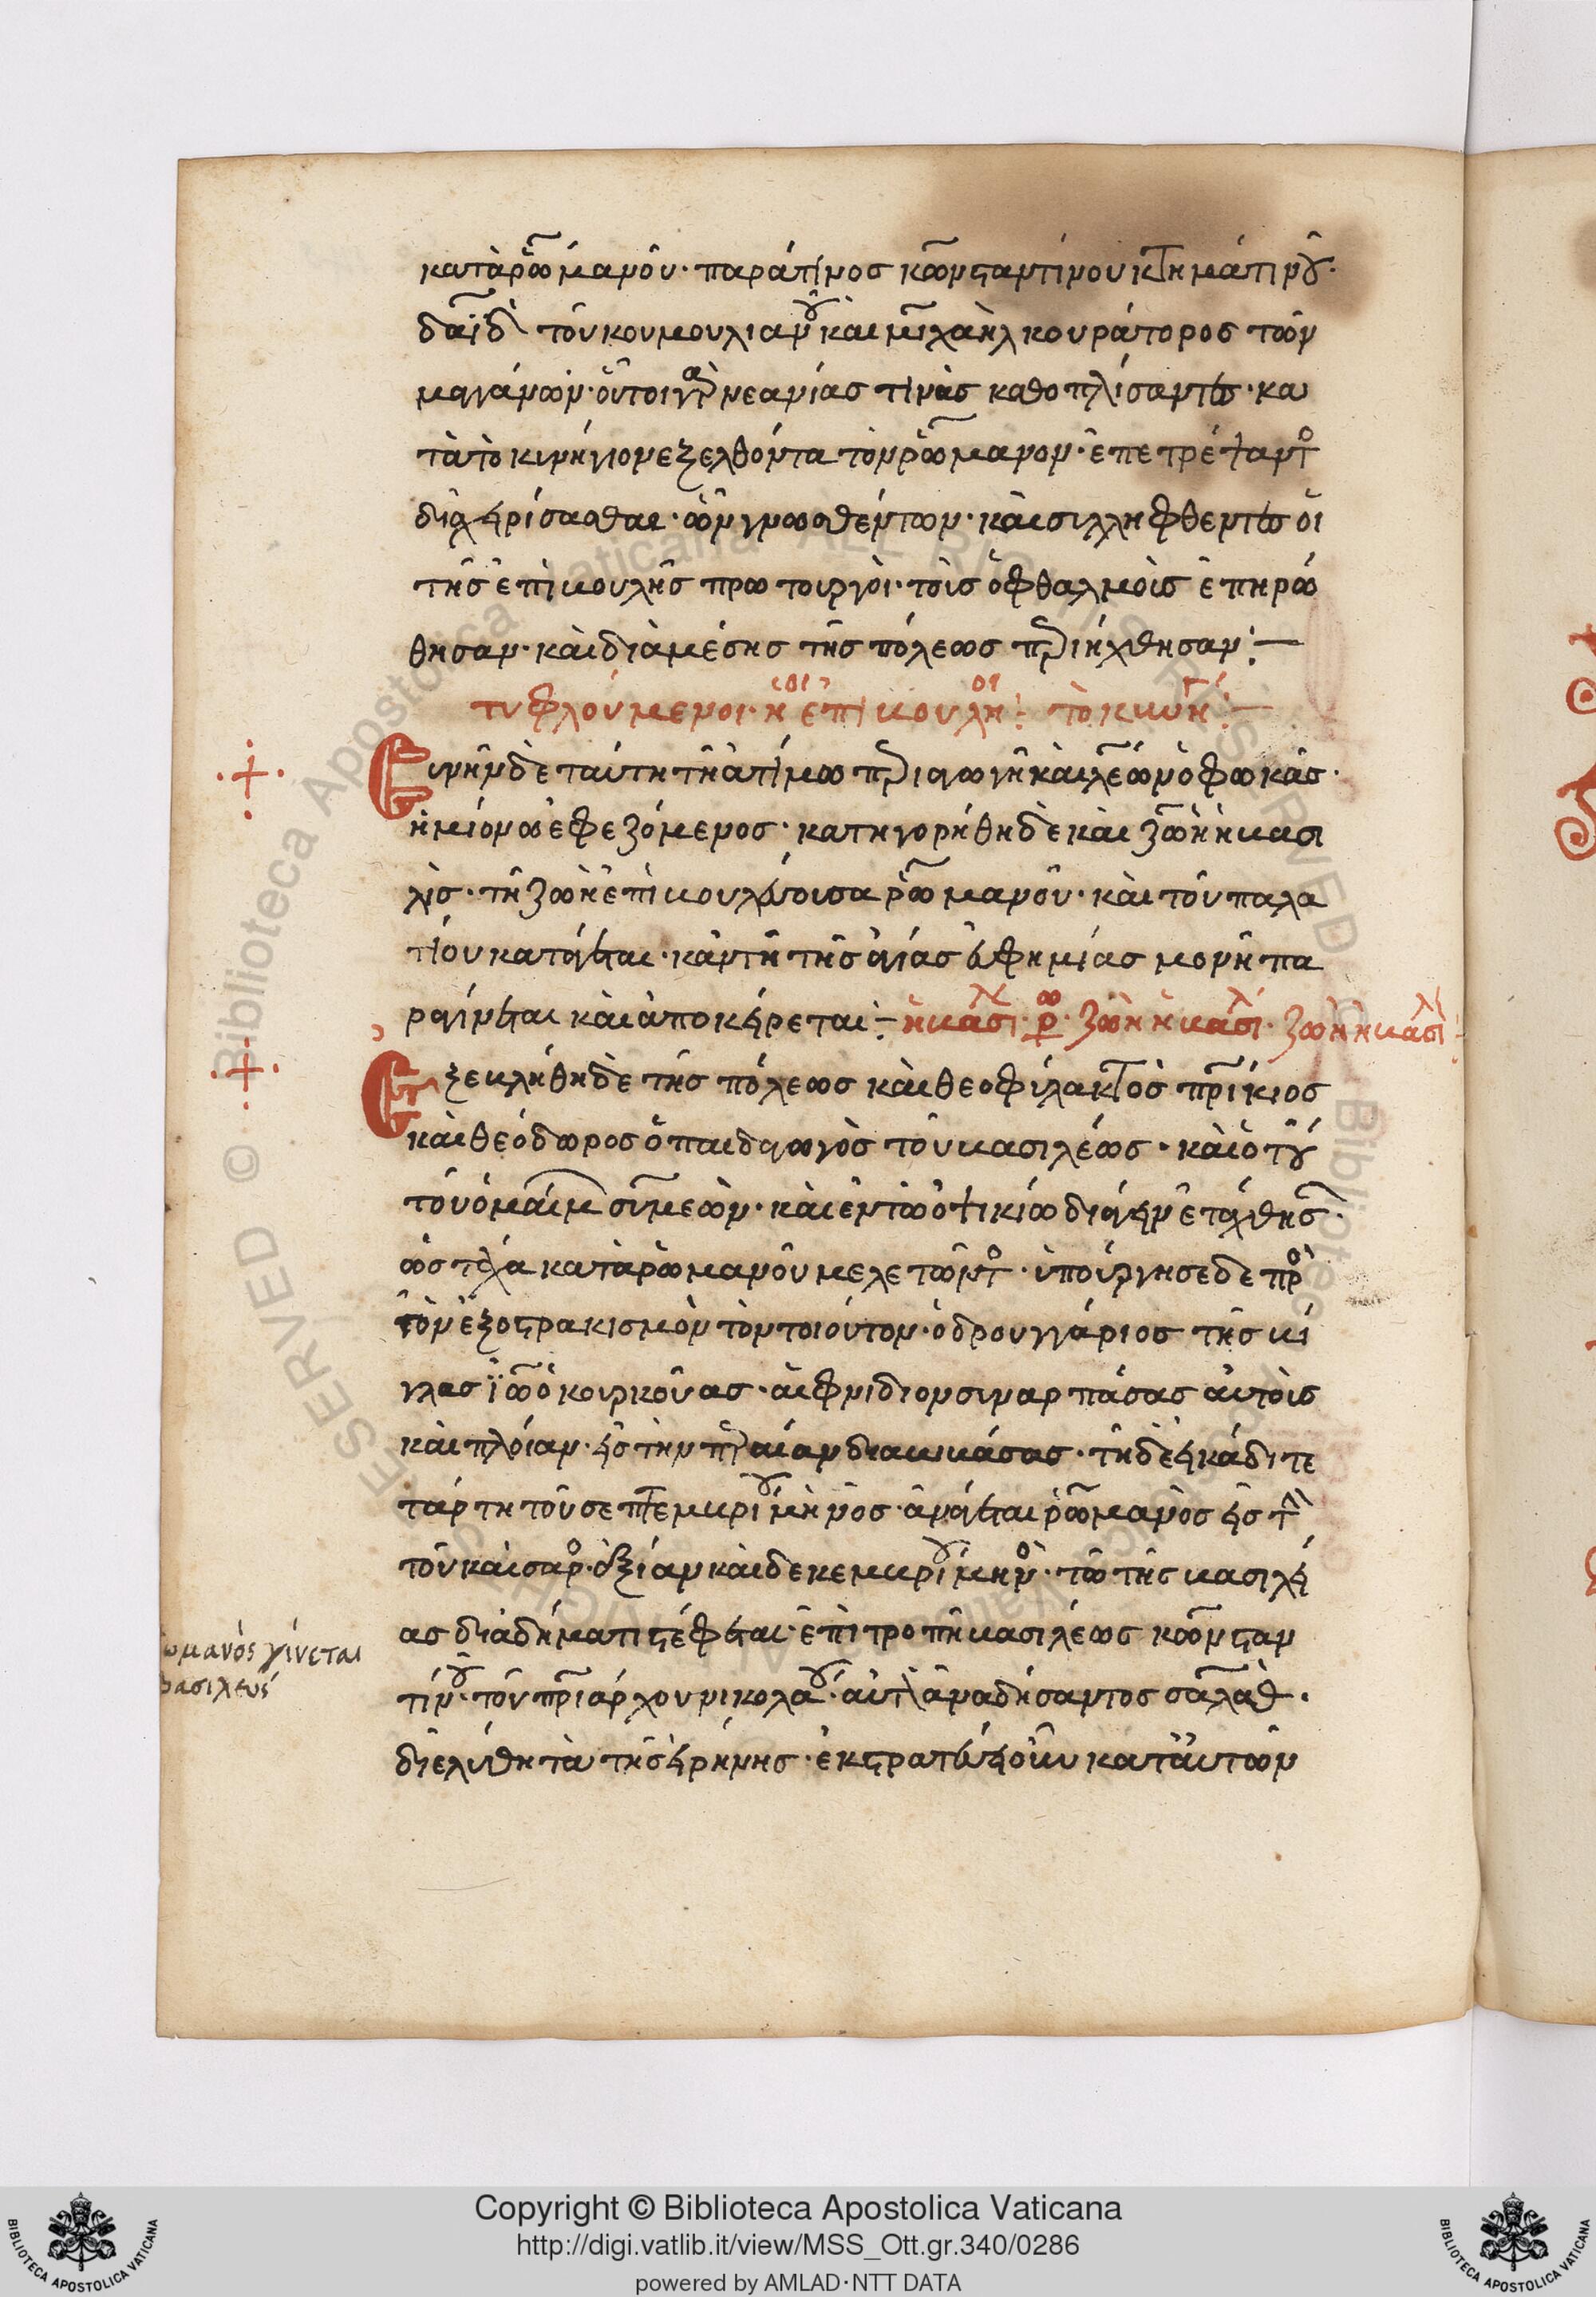 κατὰ ῥωμανοῦ· παρά τινος κωνσταντίνου κτηματινοῦ·
δαϊδ τοῦ κουμουλιανοῦ καὶ μιχαὴλ κουράτορος τῶν
μαγάνων· οὗτοι γὰρ νεανίας τινὰς καθοπλίσαντες· κα
τὰ τὸ κινήγιον ἐξελθόντα τὸν ῥωμανον· ἐπετρέψαντο
διαχειρίσασθαι· ὧν γνωσθέντων· καὶ συλληφθεντες οἱ
τῆς ἐπιβουλῆς πρωτουργοὶ· τοὶς ὀφθαλμοὶς ἐπηρώ
θησαν· καὶ διὰ μέσης τῆς πόλεως περιήχθησαν:—
τυφλούμενοι· ἡ ἐπιβουλὴ:
Συνῆν δὲ ταύτη τῆ ἀτίμω περιαγωγῆ καὶ λέων ὁ φωκᾶς·
ἡμιόνω ἐφεζόμενος· κατηγορήθη δὲ καὶ ζωὴ ἡ βασι
λὶς· τῆ ζωῆ ἐπιβουλεύουσα ῥωμανοῦ· καὶ τοῦ παλα
τίου κατάγεται· κἀν τῆ τῆς ἁγίας εὐφημίας μονῆ πα
ραγίνεται καὶ ἀποκείρεται:— ἡ βασι· ρω· ζωὴ ἡ βασιλ· ζωὴ ἡ βασιλ:
Ἐξεβλήθη δὲ τῆς πόλεως καὶ θεοφύλακτος πατρίκιος
καὶ θεόδωρος ὁ παιδαγωγὸς τοῦ βασιλέως· καὶ ὁ τού
του ὁμαίμων συμεὼν· καὶ ἐν τῶ ὀψικίω διάγειν ἐτάχθησαν·
ὡς τάχα κατὰ ῥωμανοῦ μελετῶντο· ὑπούργησε δε πρὸ
τὸν ἐξοστρακισμὸν τὸν τοιοῦτον· ὁ δρουγγάριος τῆς βί
γλας ϊω ὁ κουρκοῦας· αἰφνιδιον συναρπάσας αὐτοὶς
καὶ πλοίαν· εἰς τὴν περαίαν διαβιβάσας· τῆ δὲ εἰκάδι τε
τάρτη τοῦ σεπτεμβρίου μηνὸς· ἀνάγεται ῥωμανὸς εἰς τὴν
τοῦ καίσαρος ἀξίαν καὶ δεκεμβρίου μηνὸ· τῶ τῆς βασιλεί
ας διαδήματι στέφεται· ἐπιτροπῆ βασιλέως κωνσταν
τίνου· τοῦ πατριάρχου νικολάου· αὐτὸν ἀναδήσαντος
διελύθη τὰ τῆς εἰρήνης· ἐκστρατεύει οὖν κατ' αὐτῶν
ωμανὸς γίνεται
βασιλεύς
Copyright © Biblioteca Apostolica Vaticana
http://digi.vatlib.it/view/MSS_Ott.gr.340/0286
powered by AMLAD·NTT DATA
BIBLIOTECA APOSTOLICA VATICANA
BIBLIOTECA APOSTOLICA VATICANA